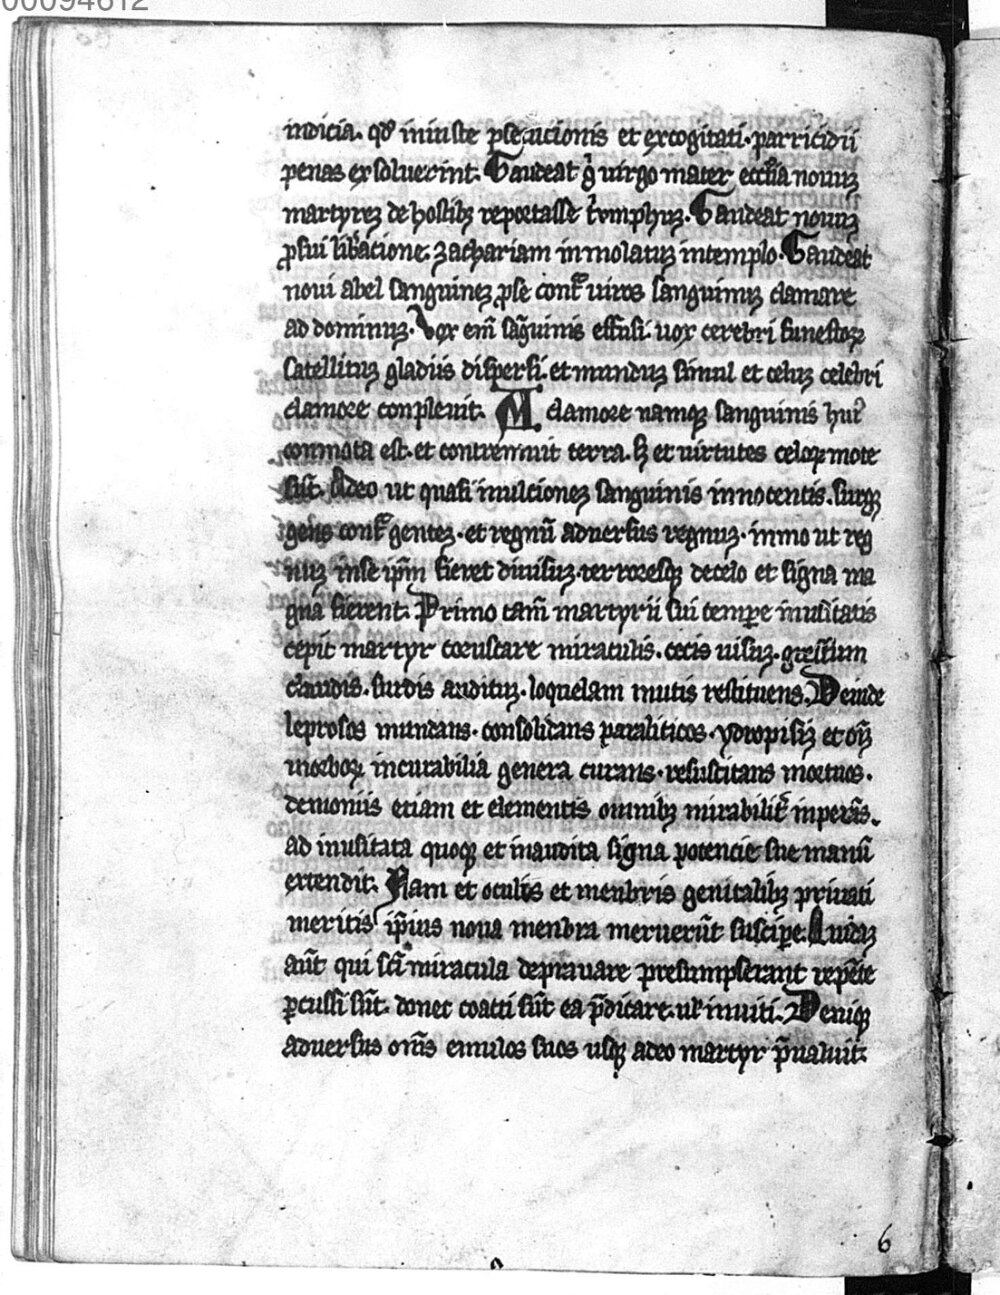 00094612
indicia. qđ iniuste ꝑsecucionis et excogitati. parricidii
penas exsoluerint. Gaudeat gͥ uirgo mater ecctia nouuꝫ
martyreꝫ de hostibꝫ reportasse tͥvmphuꝫ. Gaudeat nouuꝫ
ꝓ sui lib̾acione. zachariam inmolatuꝫ in templo. Gaudeat
noui abel sanguineꝫ ꝓ se cont̾ uiros sanguinuꝫ clamare
ad dominuꝫ. Vox em̄ sāguinis effusi. uox cerebri funestoꝝ
satellituꝫ gladiis dispersi. et munduꝫ simul et celuꝫ celebri
clamore conpleuit. A clamore namqꝫ sanguinis huiꝰ
conmota est. et contremuit terra. sꝫ et uirtutes celoꝝ mote
sūt. Adeo ut quasi in ulcioneꝫ sanguinis innocentis. surgꝫ
gens cont̾ genteꝫ. et regnū aduersus regnuꝫ. inmo ut reg
nuꝫ in se ip̄m fieret diuisuꝫ. terroresqꝫ de celo et signa ma
gna fierent. Primo tam̄ martyrii sui tempꝛe inusitatis
cepit martyr coruscare miraculis. cecis uisuꝫ. gressum
claudis. surdis audituꝫ. loquelam mutis restituens. Deinde
leprosos mundans. consolidans paraliticos. ydropisiꝫ et oīꝫ
morboꝝ incurabilia genera curans. resuscitans mortuos.
demoniis etiam et elementis omnibꝫ mirabilit̾ inperās.
ad inusitata quoqꝫ et inaudita signa potencie sue manū
extendit. Nam et oculis et menbris genitalibꝫ priuati
meritis ip̄ius noua menbra meruerūt suscipe. Quidaꝫ
aūt qui sc̄i miracula deprauare presumpserant repēte
ꝑcussi sūt. donec coacti sūt ea p̄dicare. uł inuiti. Deniqꝫ
aduersus om̄s emulos suos usqꝫ adeo martyr p̄ualuit.
6